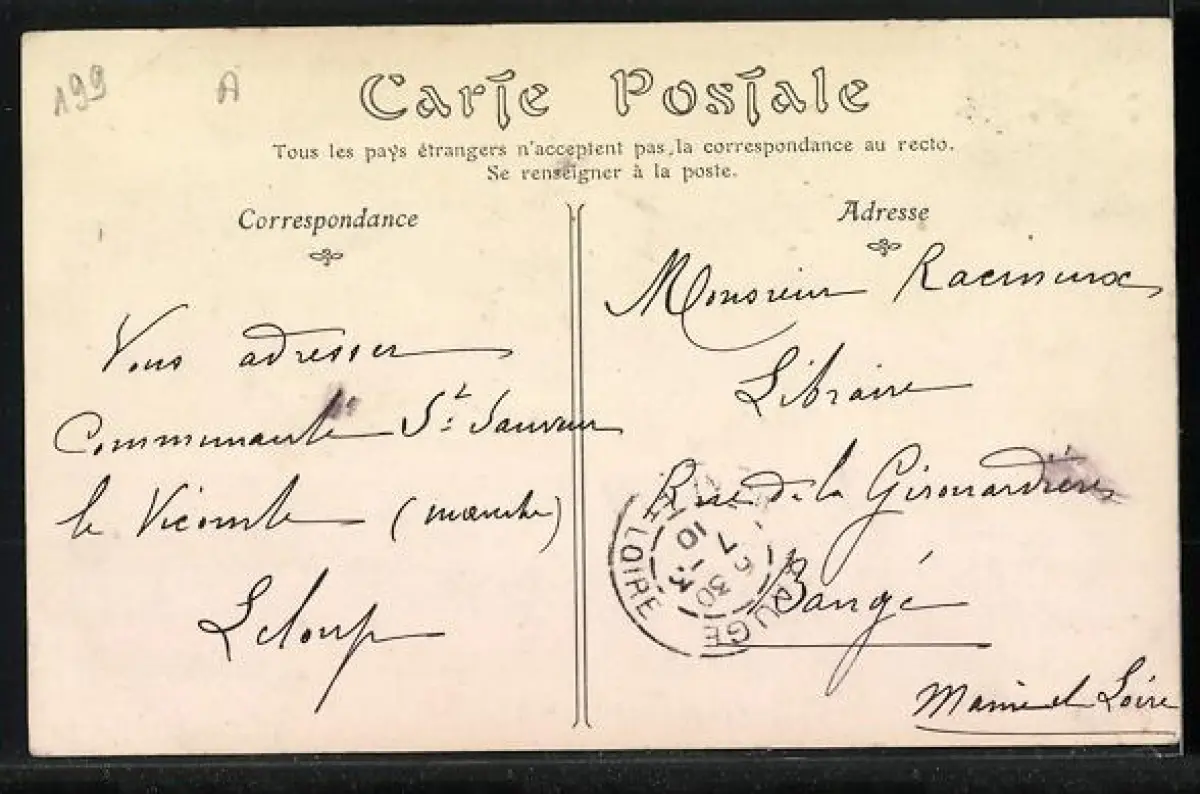 199 A
Carte Postale
Tous les pays étrangers n'acceptent pas, la correspondance au recto.
Se renseigner à la poste.
Correspondance
Vous adresser
Communauté St. Sauveur
le Vicomte (manche)
Leloup
Adresse
Monsieur Racineux
Libraire
Rue de la Girouardière
Baugé
Maine et Loire
BAUGE
LOIRE
5 30
10